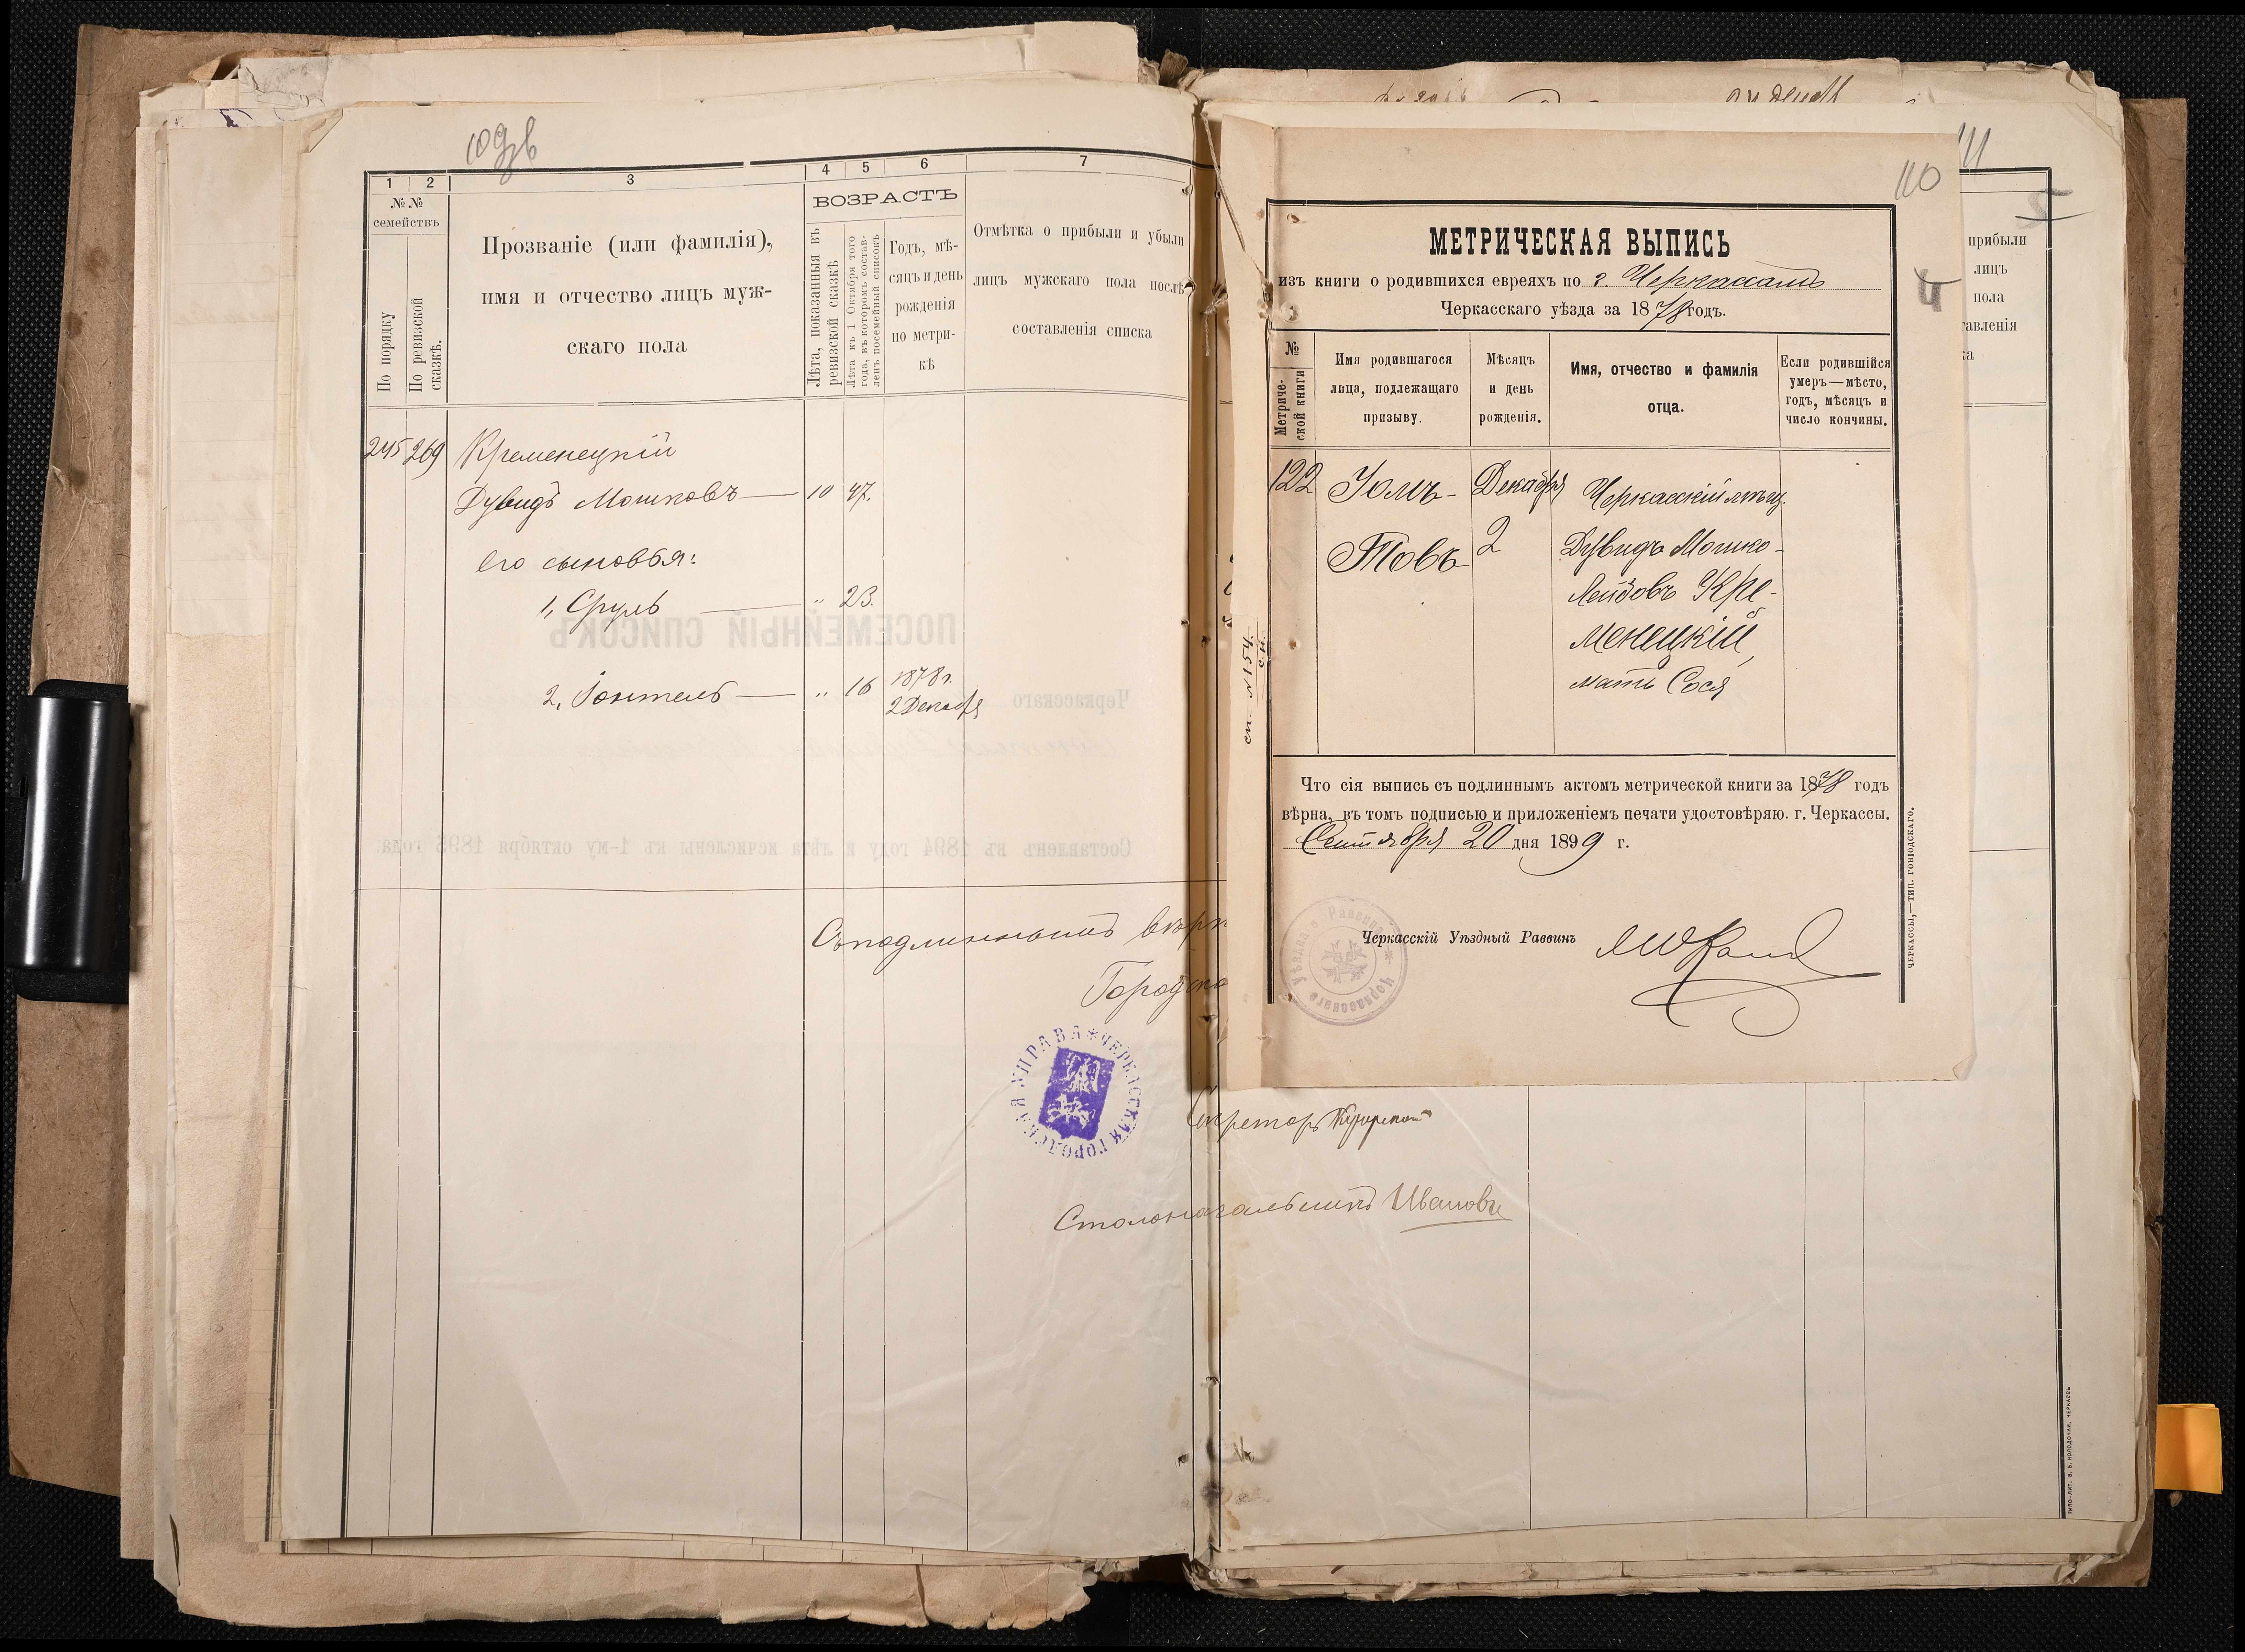 109в
1 2 3 4 5 6 7
№№
семействъ
По порядку
По ревизской
сказкѣ.
Прозваніе (или фамилія),
имя и отчество лицъ муж-
скаго пола
ВОЗРАСТЪ
Лѣта, показанныя въ
ревизской сказкѣ
Лѣта къ 1 Октября того
года, въ которомъ состав-
ленъ посемейный списокъ
Годъ, мѣ-
сяцъ и день
рожденія
по метри-
кѣ
Отмѣтка о прибыли и убыли
лицъ мужскаго пола послѣ
составленія списка
245 269 Кременецкій
Дувидъ Мошковъ — 10 47.
его сыновья:
1, Сруль — " 23.
2, Іонтель — " 16 1878 г.
2 Декабря
ПОСЕМЕЙНЫЙ СПИСОКЪ
Черкасскаго
Составленъ въ 1894 году и лѣта исчислены къ 1-му октября 1895 года.
Съ подлиннымъ вѣрн
Городско
ЧЕРКАССКАЯ ГОРОДСКАЯ УПРАВА
Секретарь
Столоначальникъ Ивановъ
111
110
5
4
прибыли
лицъ
пола
тавленія
ка
МЕТРИЧЕСКАЯ ВЫПИСЬ
изъ книги о родившихся евреяхъ по г. Черкассамъ
Черкасскаго уѣзда за 1878 годъ.
№
Метриче-
ской книги
Имя родившагося
лица, подлежащаго
призыву.
Мѣсяцъ
и день
рожденія.
Имя, отчество и фамилія
отца.
Если родившійся
умеръ—мѣсто,
годъ, мѣсяцъ и
число кончины.
122 Іомъ- Декабря Черкасскій мѣщ.
Товъ 2 Дувидъ Мошко-
Лейбовъ Кре-
менецкій,
мать Сося
сп. №154.
Что сія выпись съ подлиннымъ актомъ метрической книги за 1878 годъ
вѣрна, въ томъ подписью и приложеніемъ печати удостовѣряю. г. Черкассы.
Сентября 20 дня 1899 г.
Черкасскій Уѣздный Раввинъ
Черкасскаго Уѣзднаго Раввина
ЧЕРКАССЫ,—ТИП. ГОНІОДСКАГО.
ТИПО-ЛИТ. В. В. КОЛОДОЧКИ, ЧЕРКАССЫ